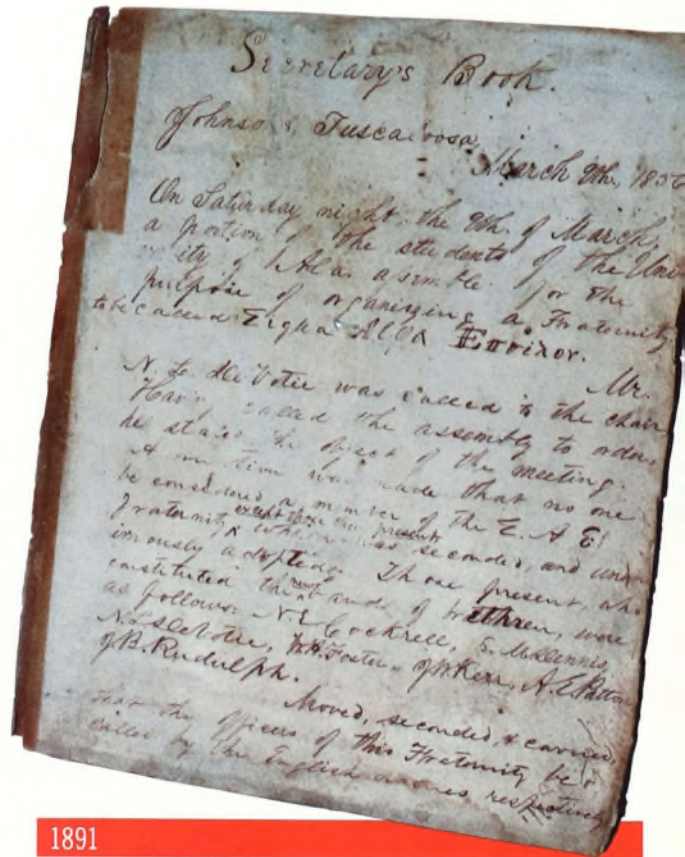 Secretary's Book.
Johnson's, Tuscaloosa,
March 9th, 1856
On Saturday night, the 9th. of March,
a portion of the students of the Uni-
versity of Ala. assemble for the
purpose of organizing a Fraternity
to be called Σιγμα Αλφα Επσιλον.
Mr.
N. L. DeVotie was called to the chair
Having called the assembly to order,
he stated the object of the meeting.
A motion was made that no one
be considered a member of the Σ. Α. Ε.
Fraternity except those then present
which was seconded, and unan-
imously adopted. Those present, who
constituted the band of brethren, were
as follows: N. E. Cockrell, S. M. Dennis,
N. L. DeVotie, W. H. Foster, J. W. Kerr, A. E. Patton
J. B. Rudulph.
Moved, seconded, & carried,
that the officers of this Fraternity be
called by the English names respectively
1891